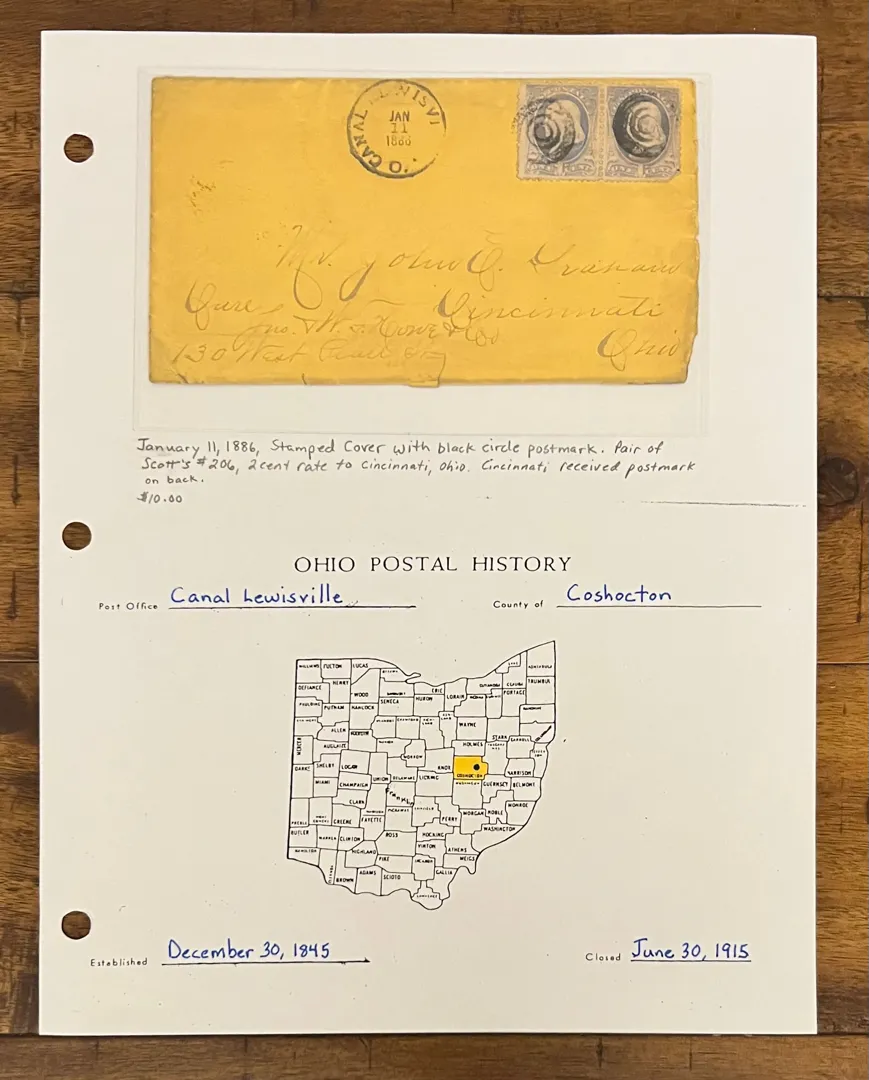 CANAL LEWISVI
JAN
11
1886
O.
ONE CENT
ONE CENT
Mr. John E. Graham
Cincinnati
Care
Jno. & W. J. Howe & Co
Ohio
130 West Pearl St
January 11, 1886, Stamped Cover with black circle postmark. Pair of
Scott's #206, 2 cent rate to Cincinnati, Ohio. Cincinnati received postmark
on back.
$10.00
OHIO POSTAL HISTORY
Post Office Canal Lewisville County of Coshocton
WILLIAMS FULTON LUCAS
OTTAWA LAKE ASHTABULA
DEFIANCE HENRY WOOD SANDUSKY ERIE LORAIN CUYAHOGA GEAUGA TRUMBULL
PAULDING PUTNAM HANCOCK SENECA HURON MEDINA SUMMIT PORTAGE
VAN WERT ALLEN HARDIN WYANDOT CRAWFORD RICHLAND ASHLAND WAYNE STARK MAHONING COLUMBIANA
MERCER AUGLAIZE MARION MORROW HOLMES CARROLL
DARKE SHELBY LOGAN UNION DELAWARE KNOX COSHOCTON HARRISON
MIAMI CHAMPAIGN LICKING GUERNSEY BELMONT
CLARK Franklin FAIRFIELD PERRY MORGAN NOBLE MONROE
PREBLE GREENE FAYETTE PICKAWAY
BUTLER WARREN CLINTON ROSS HOCKING WASHINGTON
HAMILTON HIGHLAND PIKE VINTON ATHENS MEIGS
BROWN ADAMS SCIOTO JACKSON GALLIA
LAWRENCE
Established December 30, 1845 Closed June 30, 1915